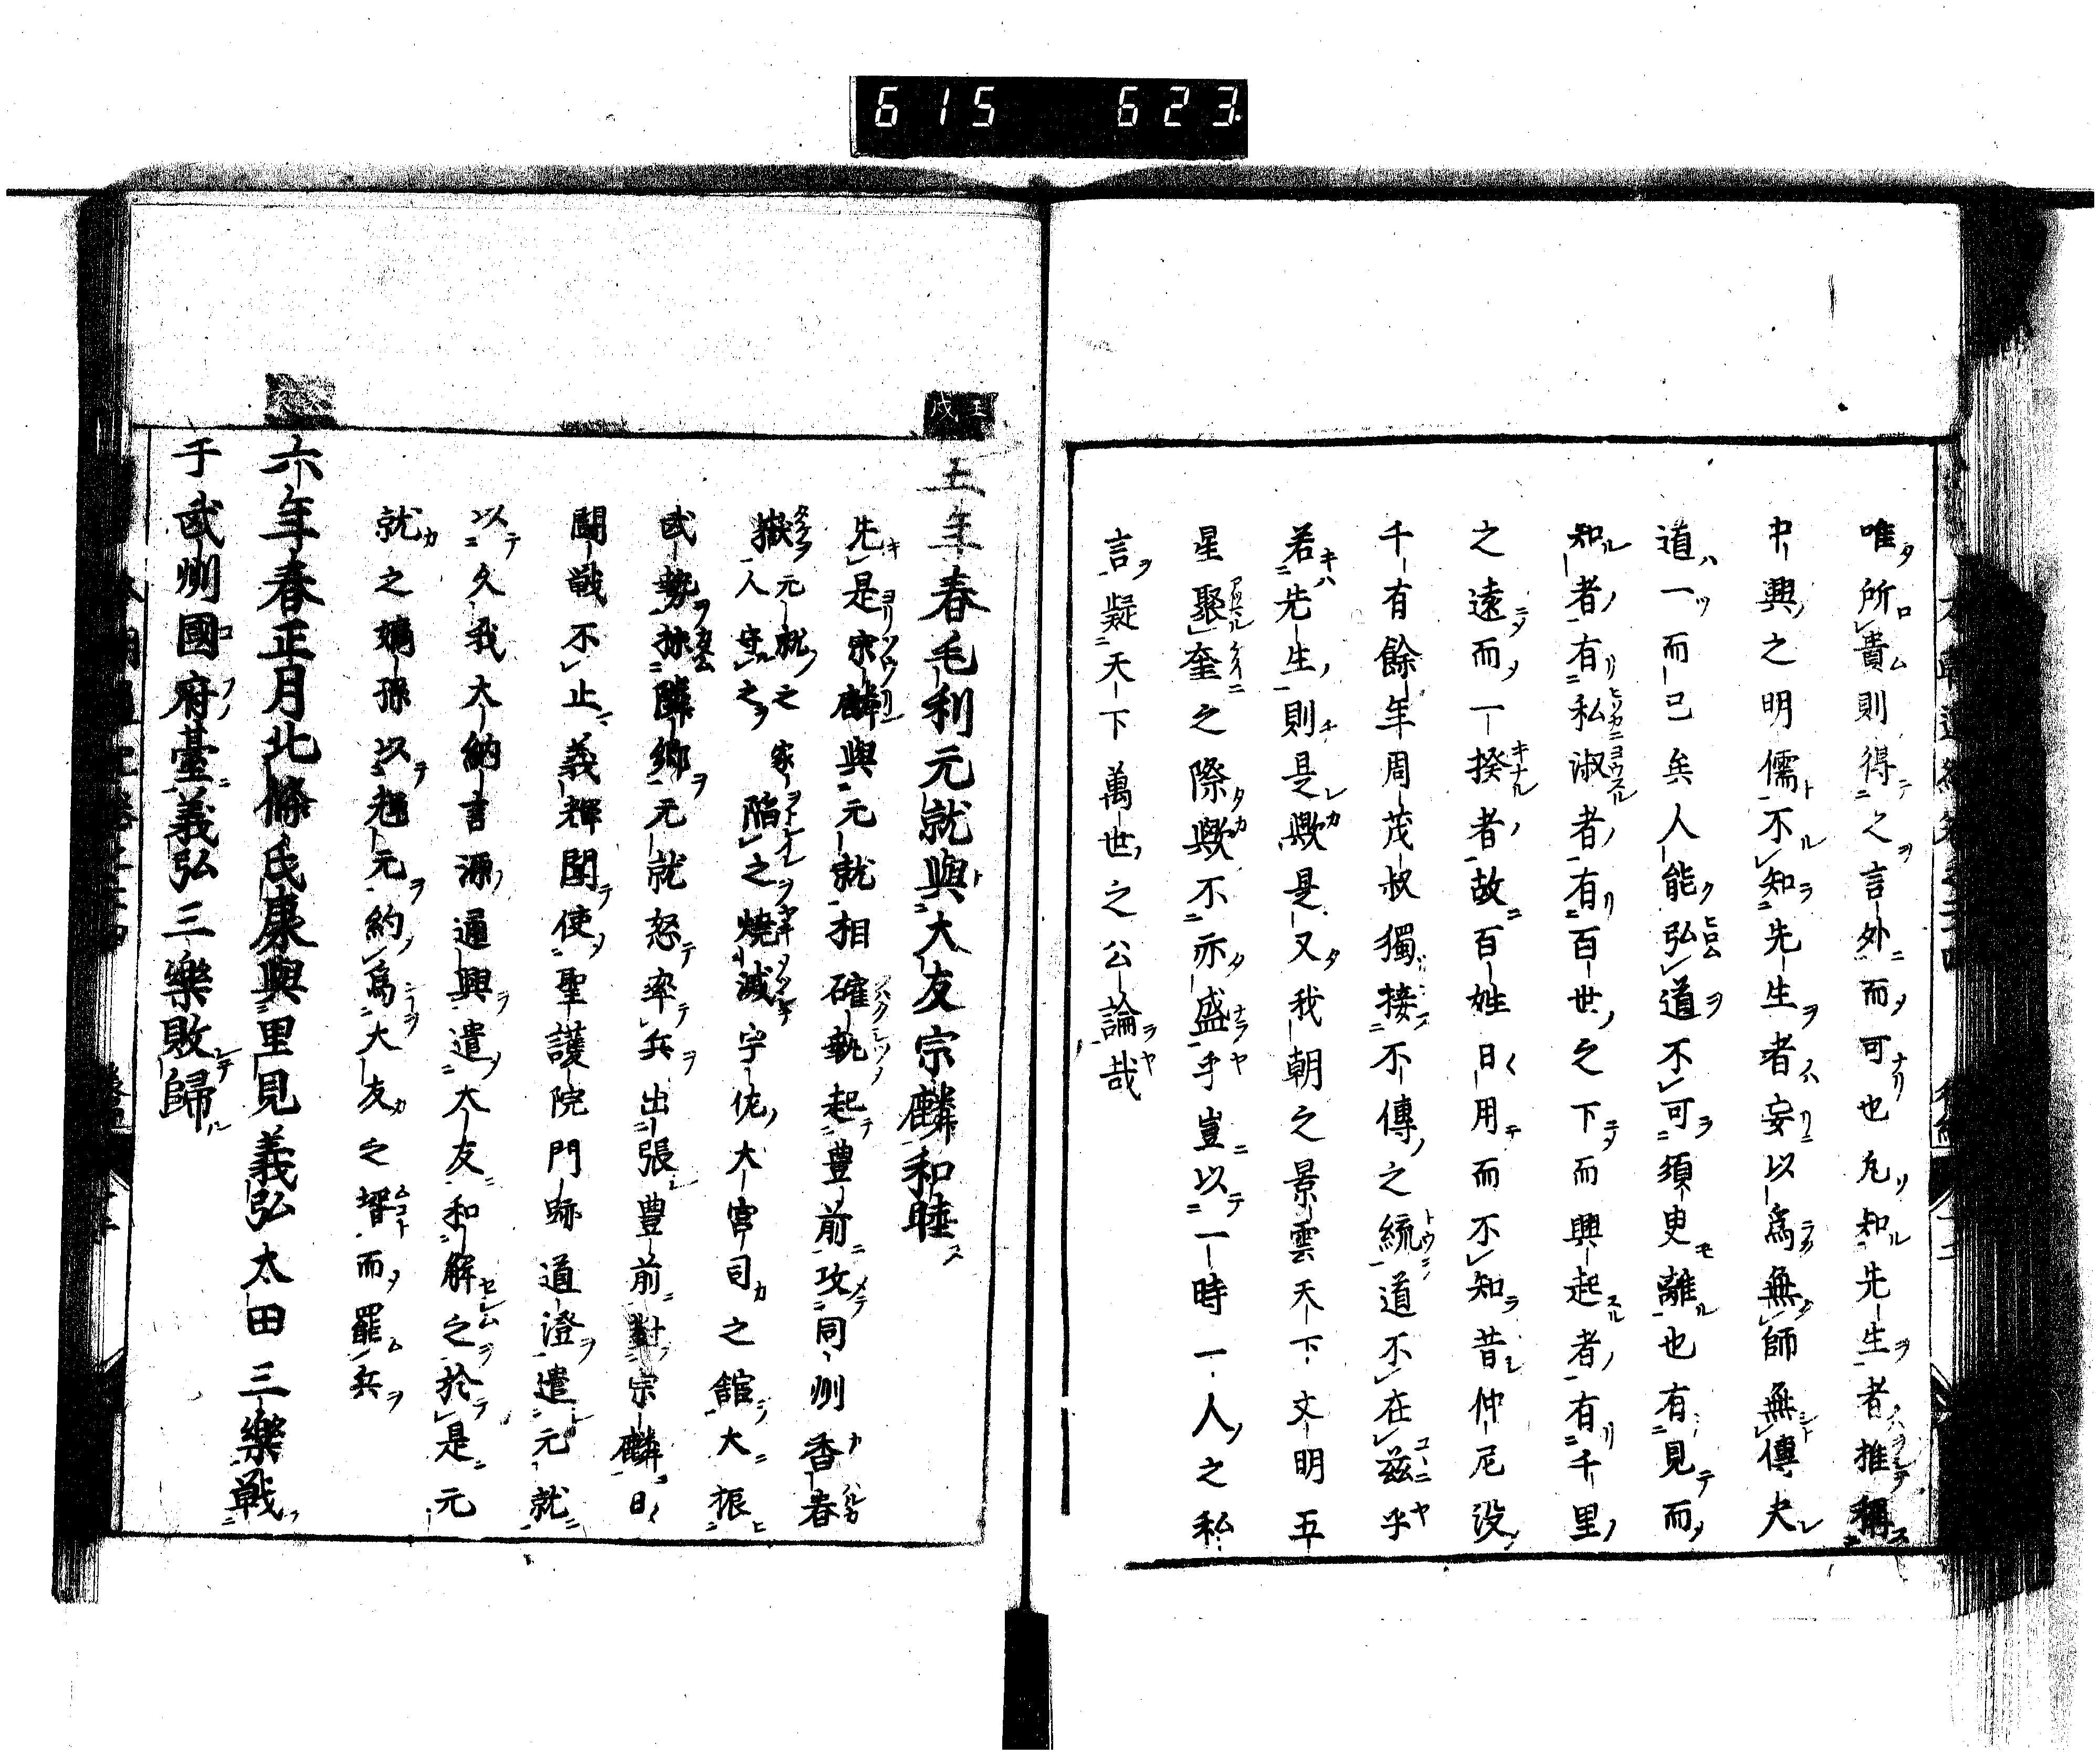 615 623
唯所貴則得之言外而可也凡知先生者推稱
中興之明儒不知先生者妄以爲無師無傳夫
道一而已矣人能弘道不可須臾離也有見而
知者有私淑者有百世之下而興起者有千里
之遠而一揆者故百姓日用而不知昔仲尼没
千有餘年周茂叔獨接不傳之統道不在茲乎
若先生則是歟是又我朝之景雲天下文明五
星聚奎之際歟不亦盛乎豈以一時一人之私
言疑天下萬世之公論哉
壬戌
五年春毛利元就與大友宗麟和睦
先是宗麟與元就相確執起豊前攻同州香春
嶽元就之家人守之陥之燒滅宇佐大宮司之舘大振
武勢掠隣郷元就怒率兵出張豊前對宗麟日
闘戦不止義輝聞使聖護院門跡道澄遣元就
以久我大納言源通興遣大友和解之於是元
就之嫡孫以輝元約爲大友之壻而罷兵
六年春正月北條氏康與里見義弘太田三樂戰
于武州國府臺義弘三樂敗歸